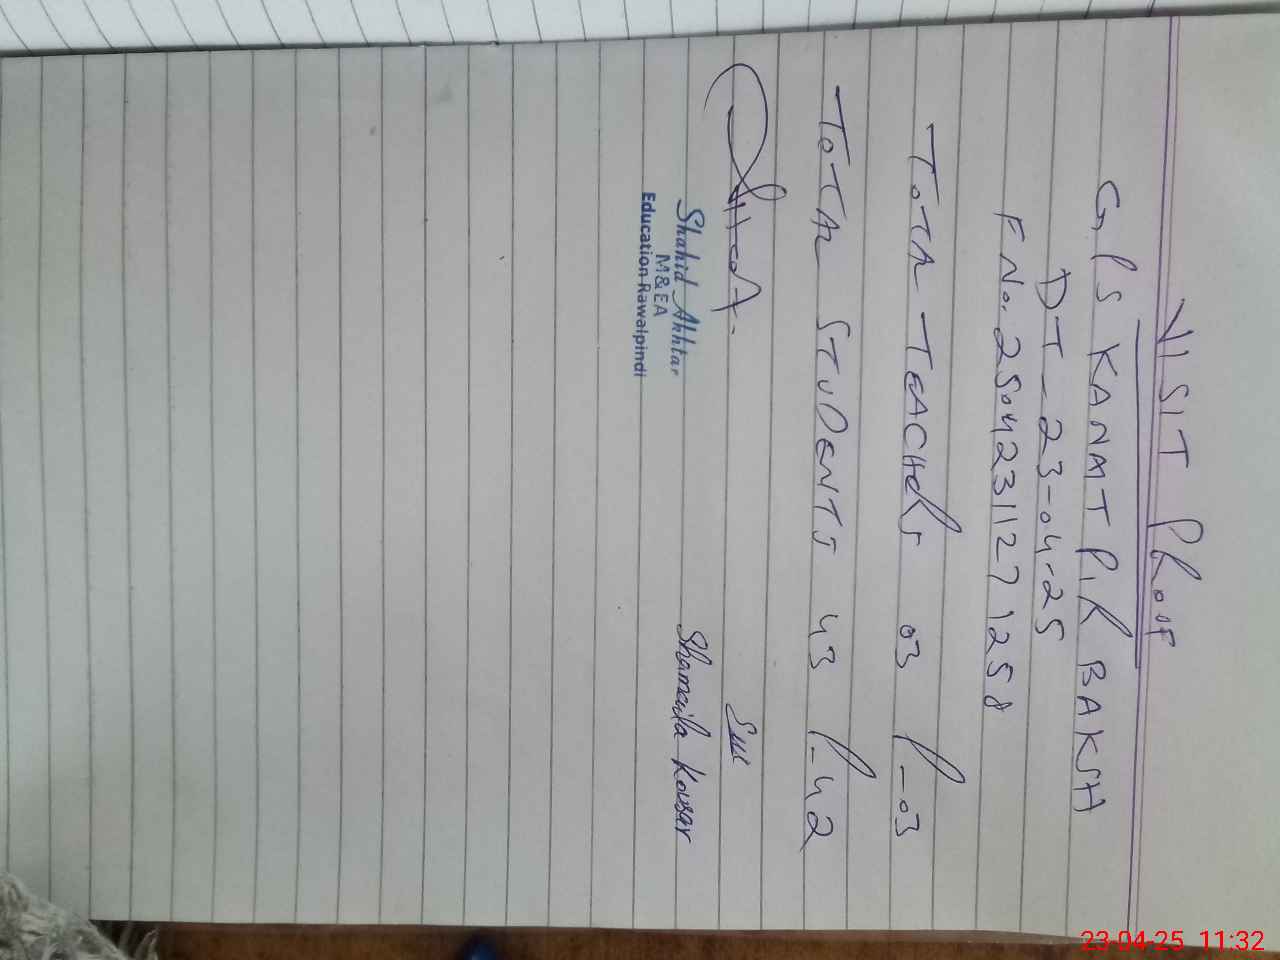 VISIT PROOF
GPS KANMT PIR BAKSH
DT-23-04-25
F No. 25042311271258
TOTAL TEACHERS 03 P-03
TOTAL STUDENTS 43 P-42
Shahid Akhtar
M&EA
Education Rawalpindi
Shameila Kousar
23-04-25 11:32